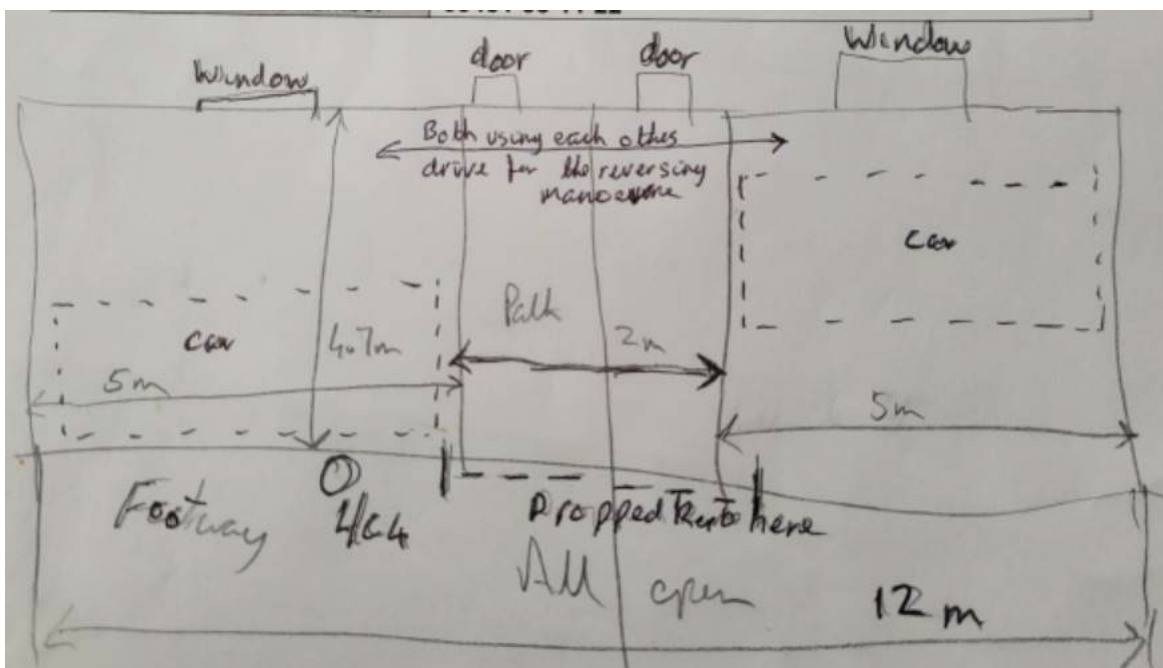 door
door
Window
Window
Both using each other
drive for the reversing
manoeuvre
car
car
Path
4.7m
2m
5m
5m
Footway
Dropped Kerb here
All open
12 m